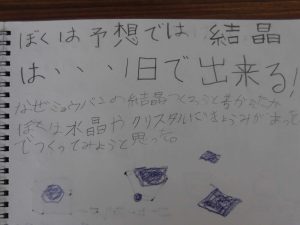 ぼくは予想では 結晶
は、、、1日で出来る!
なぜミョウバンの結晶つくろうと考えたか
ぼくは水晶やクリスタルにきょうみがあって
じつくってみようと思った。